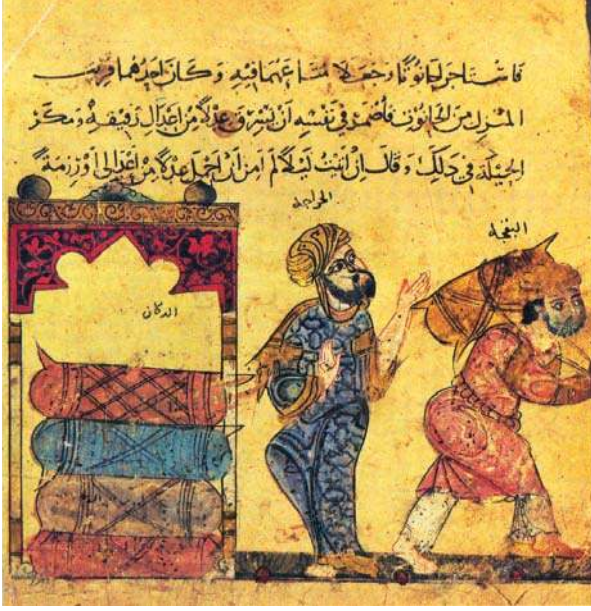 فَاسْتَاجَرَا حَانُوتًا وَجَعَلَا مَتَاعَهُمَا فِيهِ وَكَانَ اَحَدُهُمَا قريب
المنزل مِنَ الحَانوت فَأضمر فِي نَفْسِهِ اَنْ يَسْرِقَ عِدْلًا مِنْ اَعْدَالِ رَفِيقِهِ وَمَكَرَ
الحِيلَةَ فِي ذلِكَ وَقَالَ اِنْ اَتَيْتُ لَيْلًا لَمْ آمَنْ اَنْ اَحْمِلَ عِدْلًا مِنْ اَعْدَالِي اَوْ رِزمَةً
البقجة
الدكان